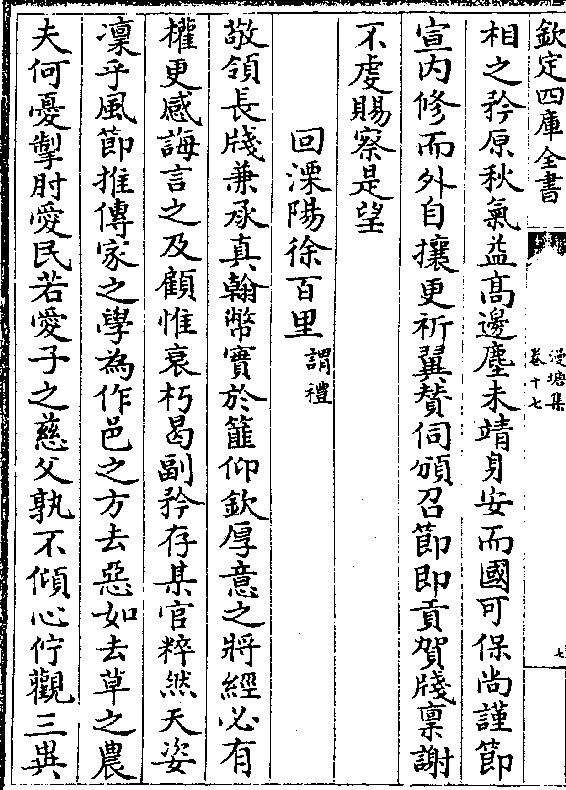 欽定四庫全書
漫塘集
卷十七
七
相之矜原秋氣益高邊塵未靖身安而國可保尚謹節
宣内修而外自攘更祈翼賛伺頒召節即貢賀牋稟謝
不䖍賜察是望
回溧陽徐百里謂禮
敬領長牋兼承真翰幣實於篚仰欽厚意之將經必有
權更感誨言之及顧惟衰朽曷副矜存某官粹然天姿
凜乎風節推傳家之學為作邑之方去惡如去草之農
夫何憂掣肘愛民若愛子之慈父孰不傾心佇觀三異